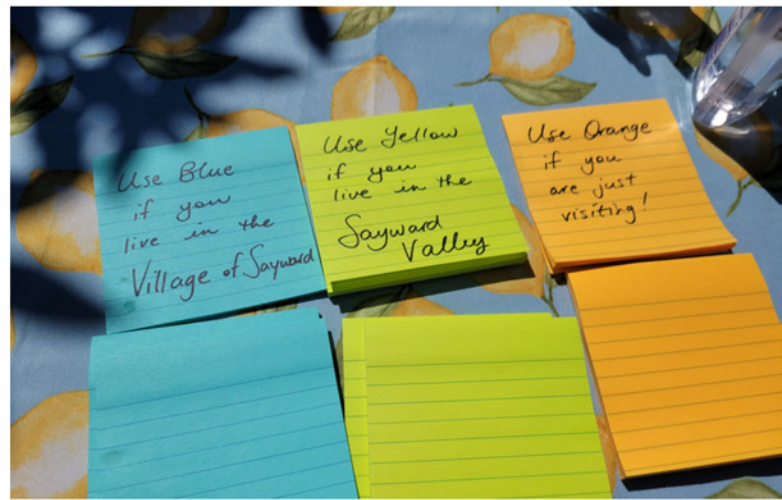 Use Blue
if you
live in the
Village of Sayward
Use Yellow
if you
live in the
Sayward
Valley
Use Orange
if you
are just
visiting!